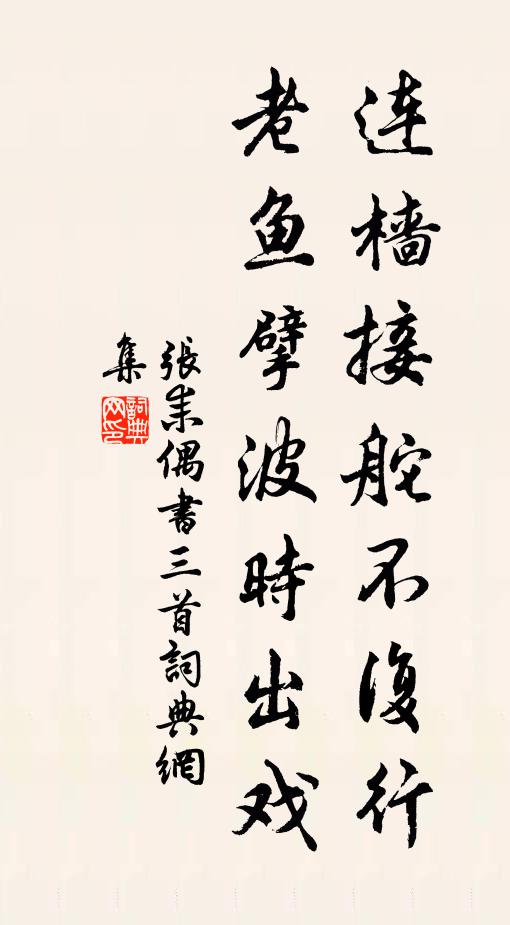 连樯接舵不復行
老鱼擘波時出戏
張耒偶書三首詞典網
集
詞典網印